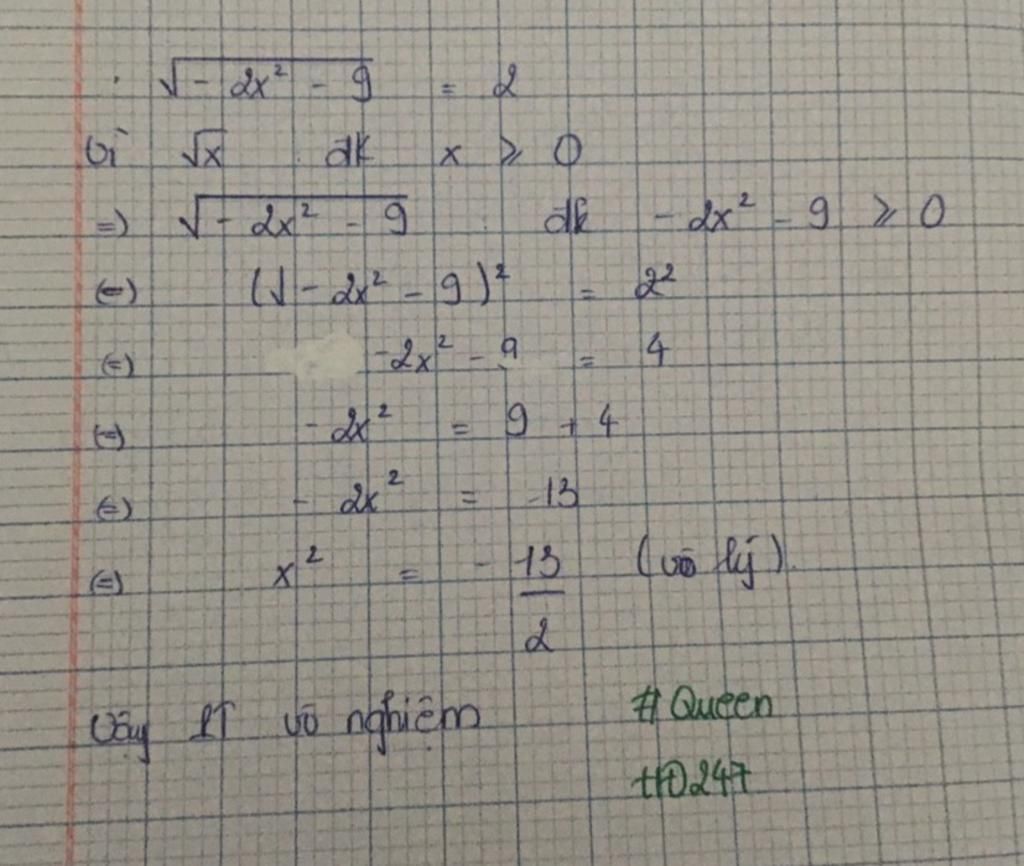 . √-2x² - 9 = 2
Vì √x đk x ⩾ 0
=) √-2x² - 9 đk -2x² - 9 ⩾ 0
(=) (√-2x² - 9)² = 2²
(=) -2x² - 9 = 4
(=) -2x² = 9 + 4
(=) - 2x² = 13
(=) x² = -13/2 (vô lý)
Vậy PT vô nghiệm
# Queen
HD247